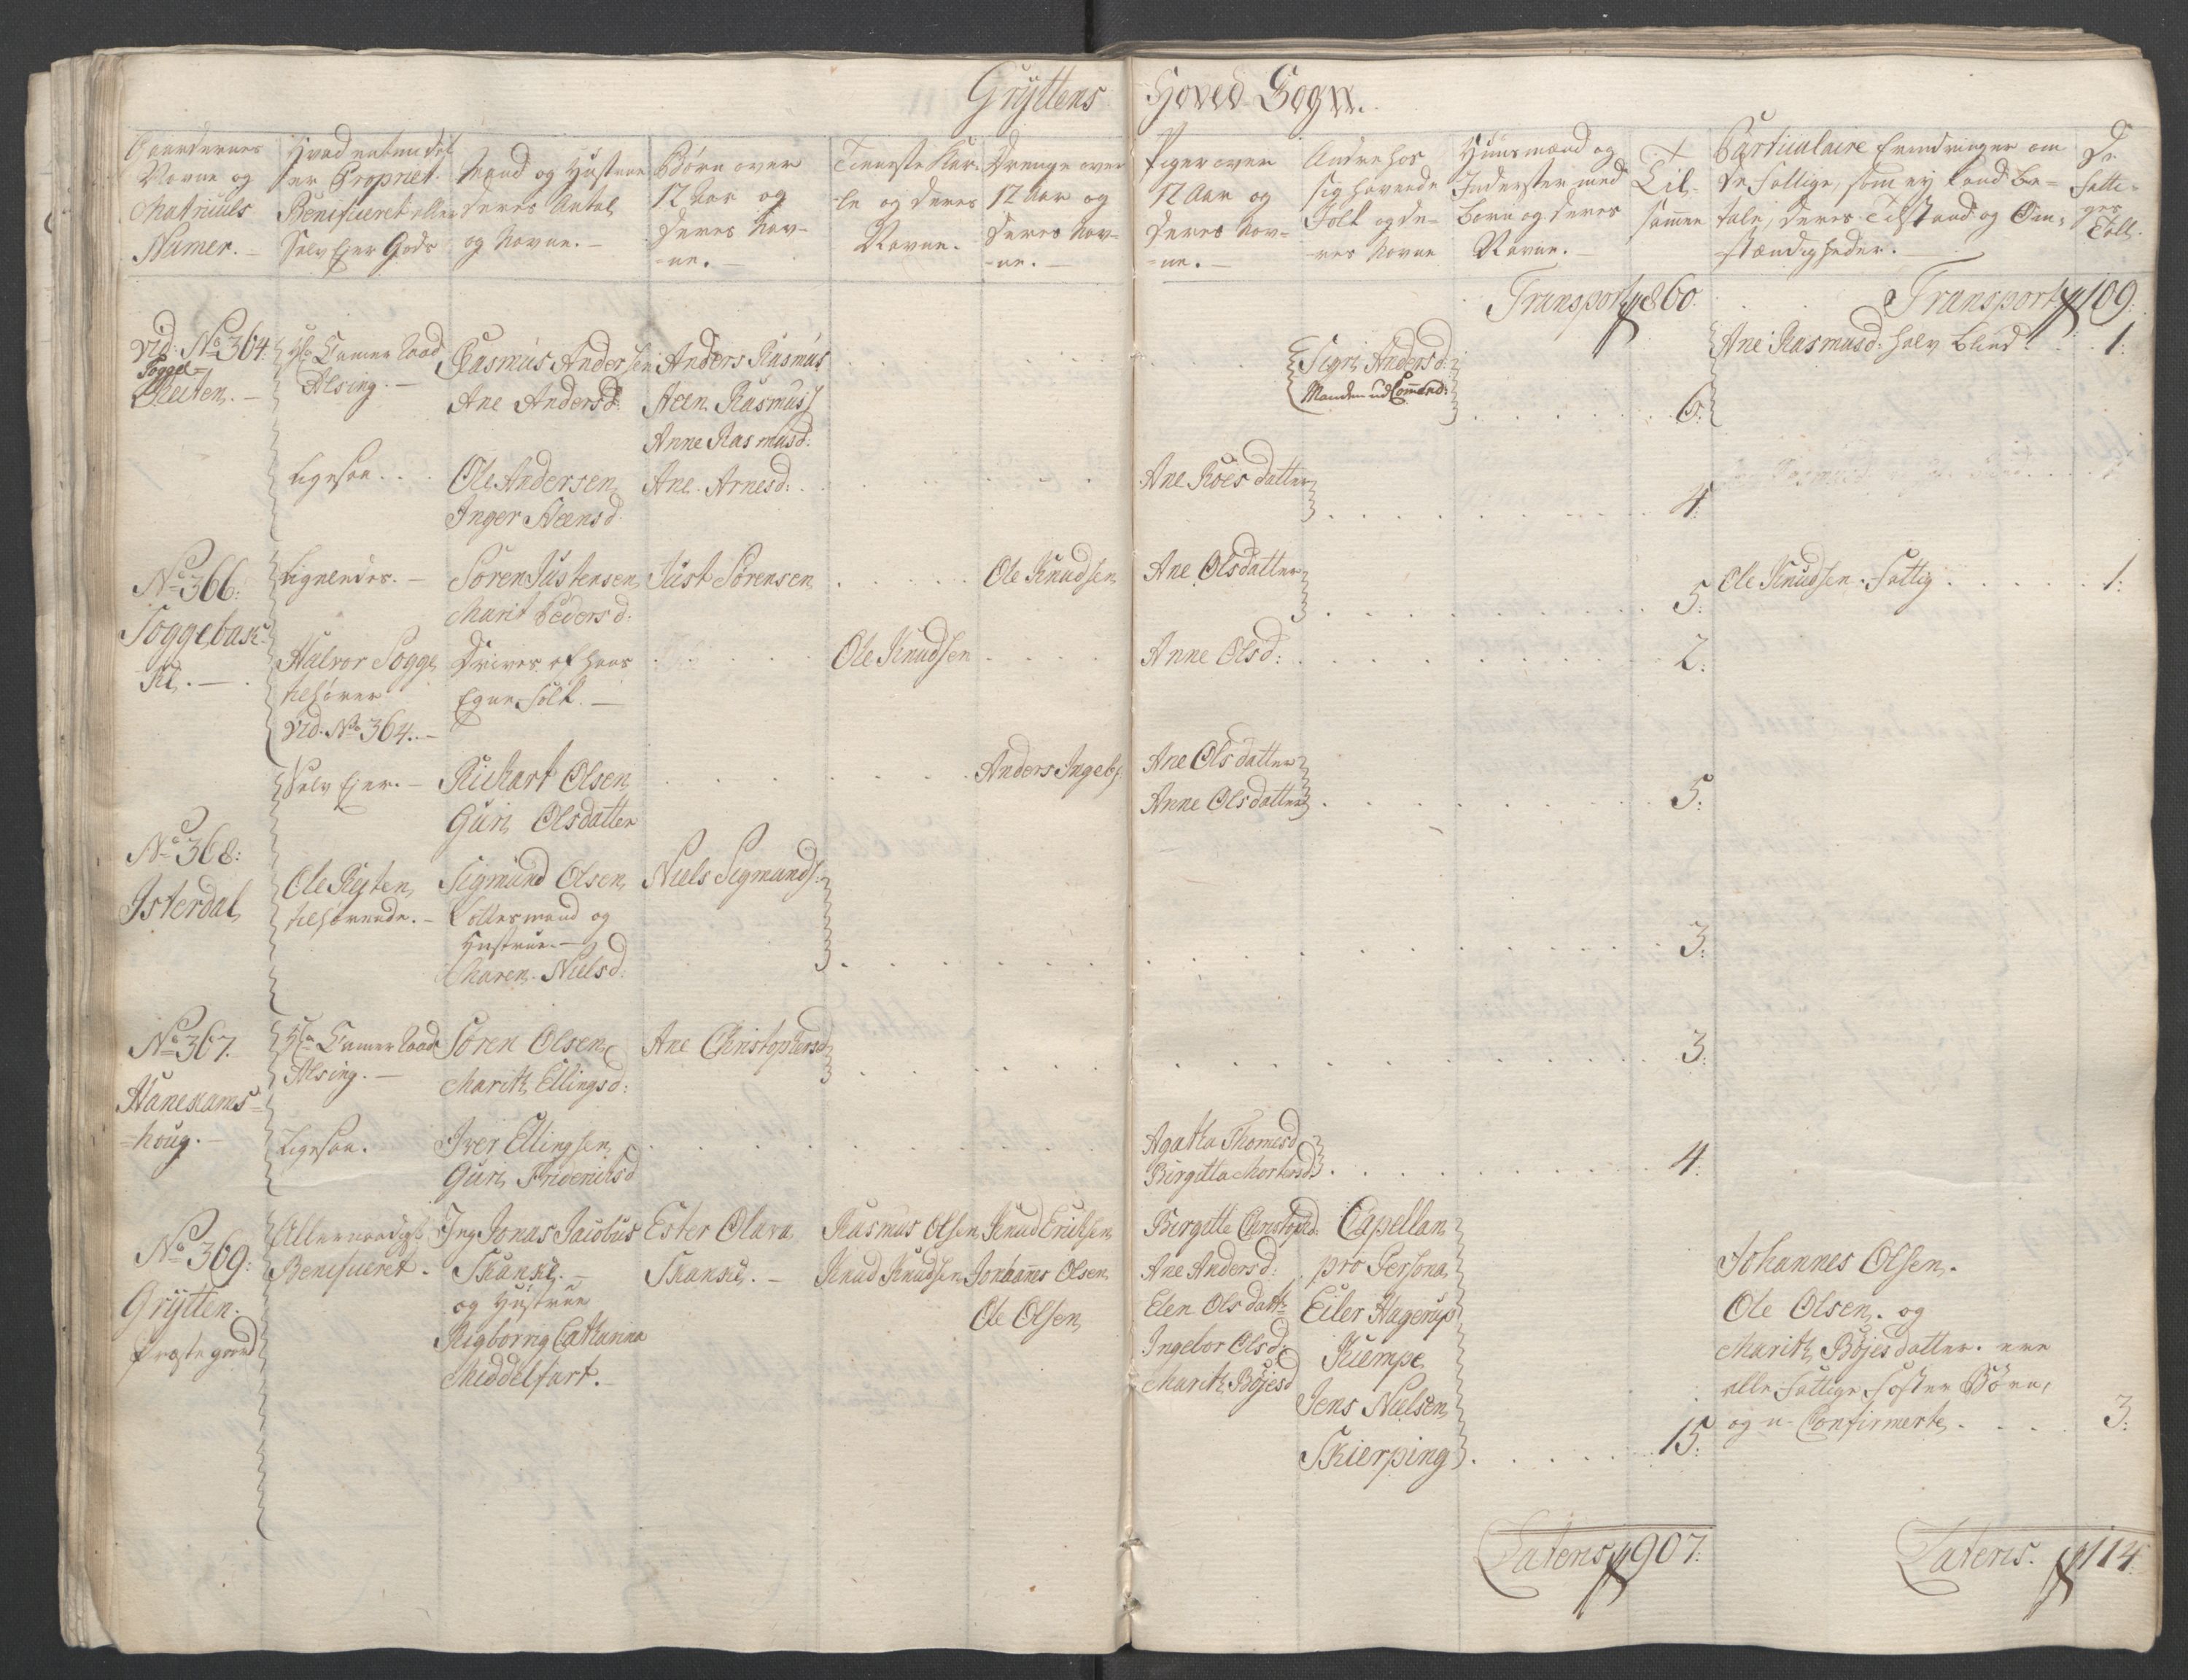 Gryttens Hoved Sogn.
Gaardernes
Navne og
Matriculs
Numer.
Hvad enten det
er Propriet.
Benificeret eller
Selv Ejer Gods
Mand og Hustrue
deres Antal
og Navne.
Børn over
12 Aar og
deres Nav-
-ne.
Tieneste Kar-
-le og deres
Navne.
Drenge over
12 Aar og
deres Nav-
-ne.
Piger over
12 Aar og
deres Nav-
-ne.
Andre hos
sig havende
Folk og de-
-res Navne
Huusmænd og
Inderster med
Børn og deres
Navne.
Til-
sammen
Particulaire Erindringer om
de Fattige, som ey kand be-
tale, deres Tilstand og Om-
stændigheder.
De
Fatti-
ges
Tall.
Transport 860.
Transport 109:
Vid. No 364.
Sogge-
Reiten.
Hr. Camer Raad
Alsing.
Rasmus Andersen
Ane Andersd:
Anders Rasmus
Steen Rasmuss
Anne Rasmusd:
Sigri Andersd:
Manden ud Comand:
6:
Ane Rasmusd: halv blind 1:
Ligesaa
Ole Andersen
Inger Steensd.
Ane Arnesd:
Ane Roes datter
4:
No 366:
Soggebak-
ke.
Lignendes.
Søren Justensen
Marit Pedersd:
Just Sørensen
Ole Knudsen
Ane Olsdatter
5:
Ole Knudsen Fattig 1:
Halvor Sogge
tilhører
Vid. No 364.
Drives af hans
Egne Folk.
Ole Knudsen
Anne Olsd:
2:
Selv Ejer.
Richart Olsen
Guri Olsdatter
Anders Ingebs:
Ane Olsdatter
Anne Olsdatter
5:
No 368:
Isterdal
Ole Reiten
tilhørende.
Sigmund Olsen
og
Hustrue.
Maren Nielsd:
Niels Sigmunds:
3:
No 367.
Hanekams-
-houg.
Hr. Camer Raad
Alsing.
Søren Olsen
Marith Ellingsd:
Ane Christophersd
3:
Ligesaa.
Iver Ellingsen
Guri Friderichsd
Agatha Thomesd
Birgitta Mortensd
4:
No 369:
Grytten
Præste gaard
Allernaadigst
Benificeret.
Jonas Jacobus
Skanke.
og Hustrue
Rigborrig Catharina
Middelfart.
Ester Olava
Skanke.
Rasmus Olsen
Knud Knudsen
Knud Ericksen
Johannes Olsen
Ole Olsen
Birgitte Christophd:
Ane Andersd:
Elen Olsdatt
Ingebor Olsd
Marith Bojesd
Capellan
pro Persona
Eiler Hagerup
Kiempe
Jens Nielsen
Skierping
15:
Johannes Olsen.
Ole Olsen og
Marith Bojesdatter. ere
alle Fattige Foster Børn,
og u-Confirmerte 3:
Lateris 907:
Lateris. 114